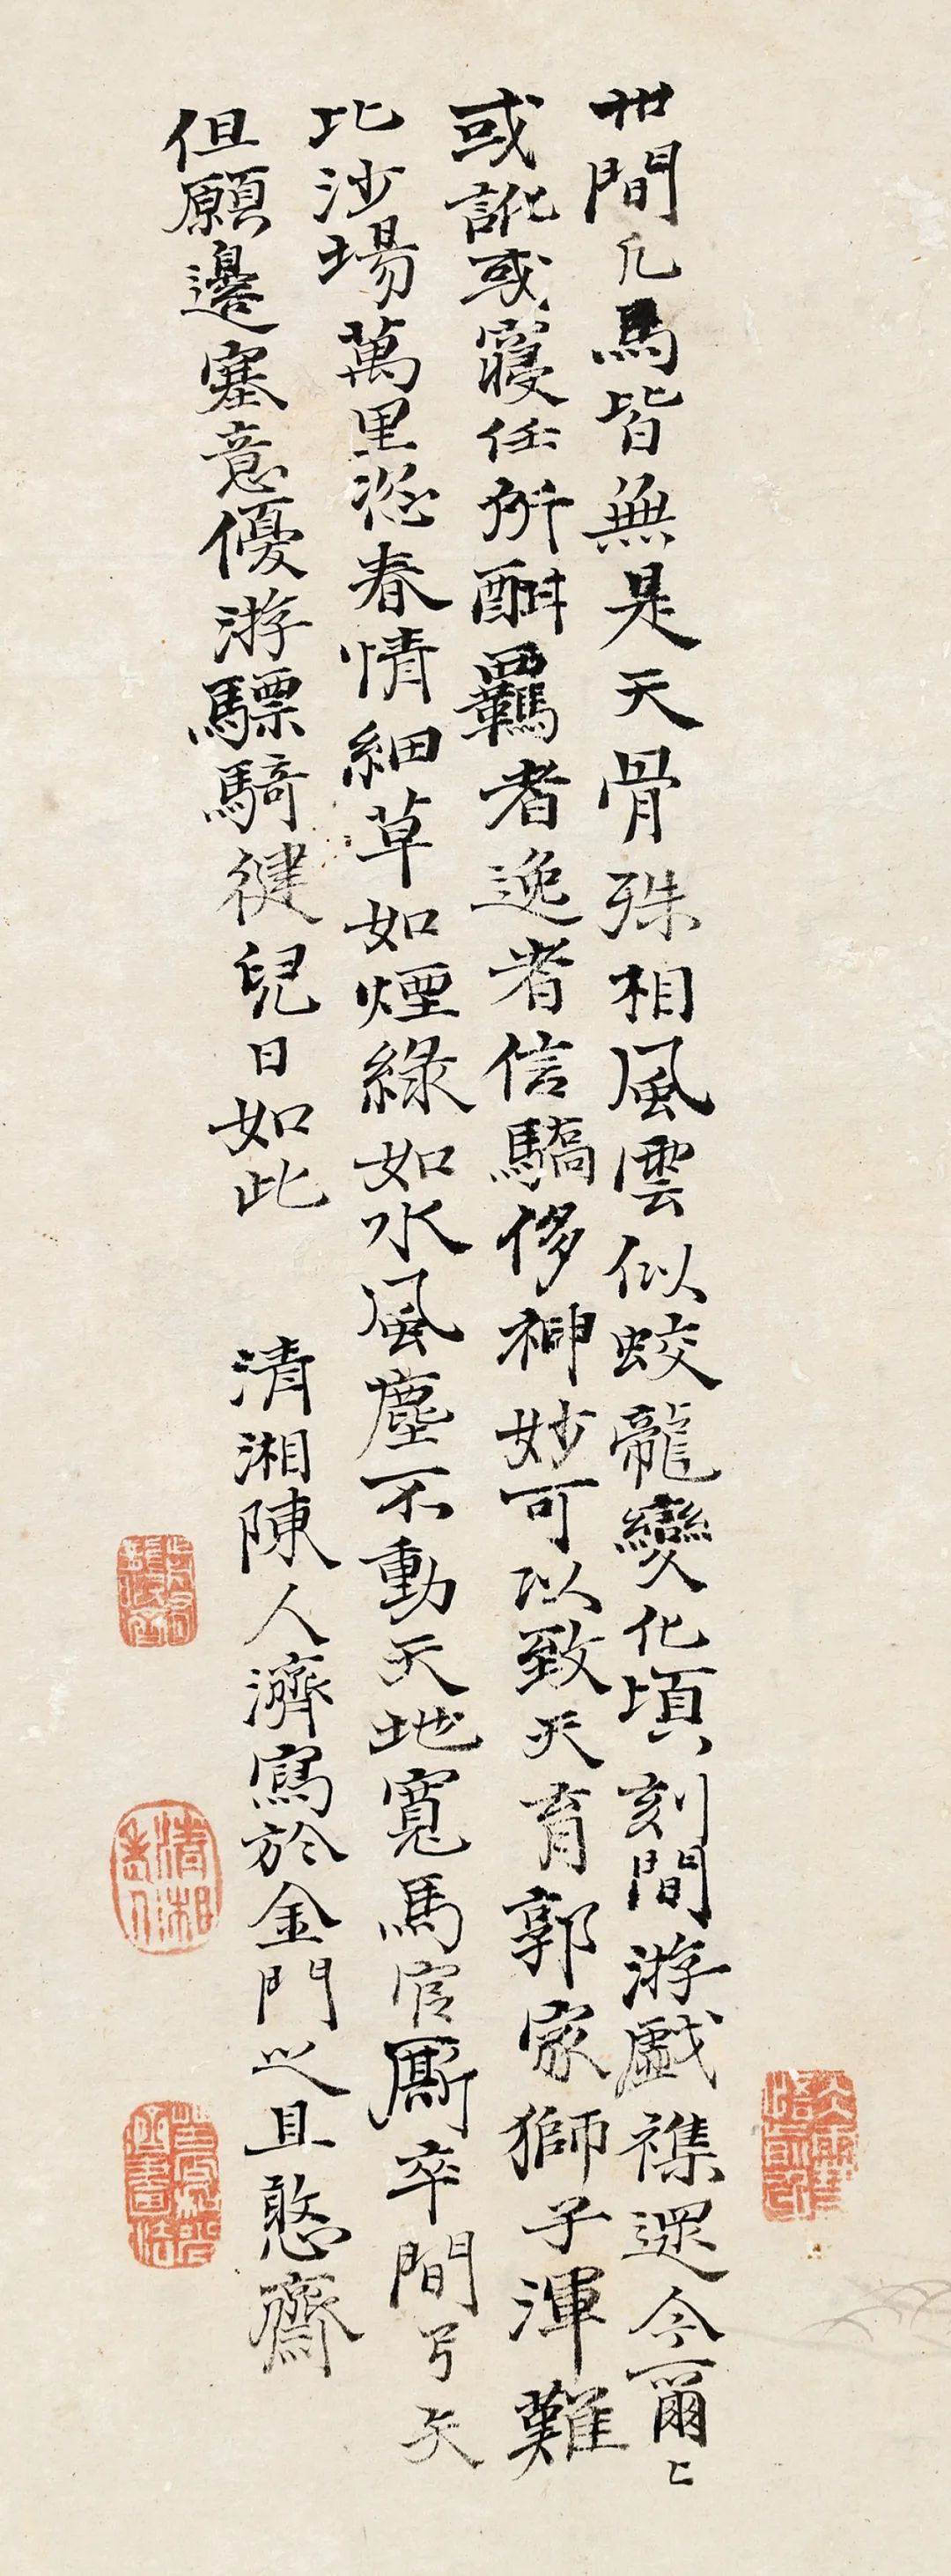 世間凡馬皆無是天骨殊相風雲似蛟龍變化頃刻間游戲襍遝今爾〻
或訛或寢任所酣羈者逸者信驕侈神妙可以致天育郭家獅子渾難
比沙場萬里恣春情細草如煙綠如水風塵不動天地寬馬官厮卒閒弓矢
但願邊塞意優游驃騎健兒日如此
清湘陳人濟寫於金門之且憨齋
清湘老人